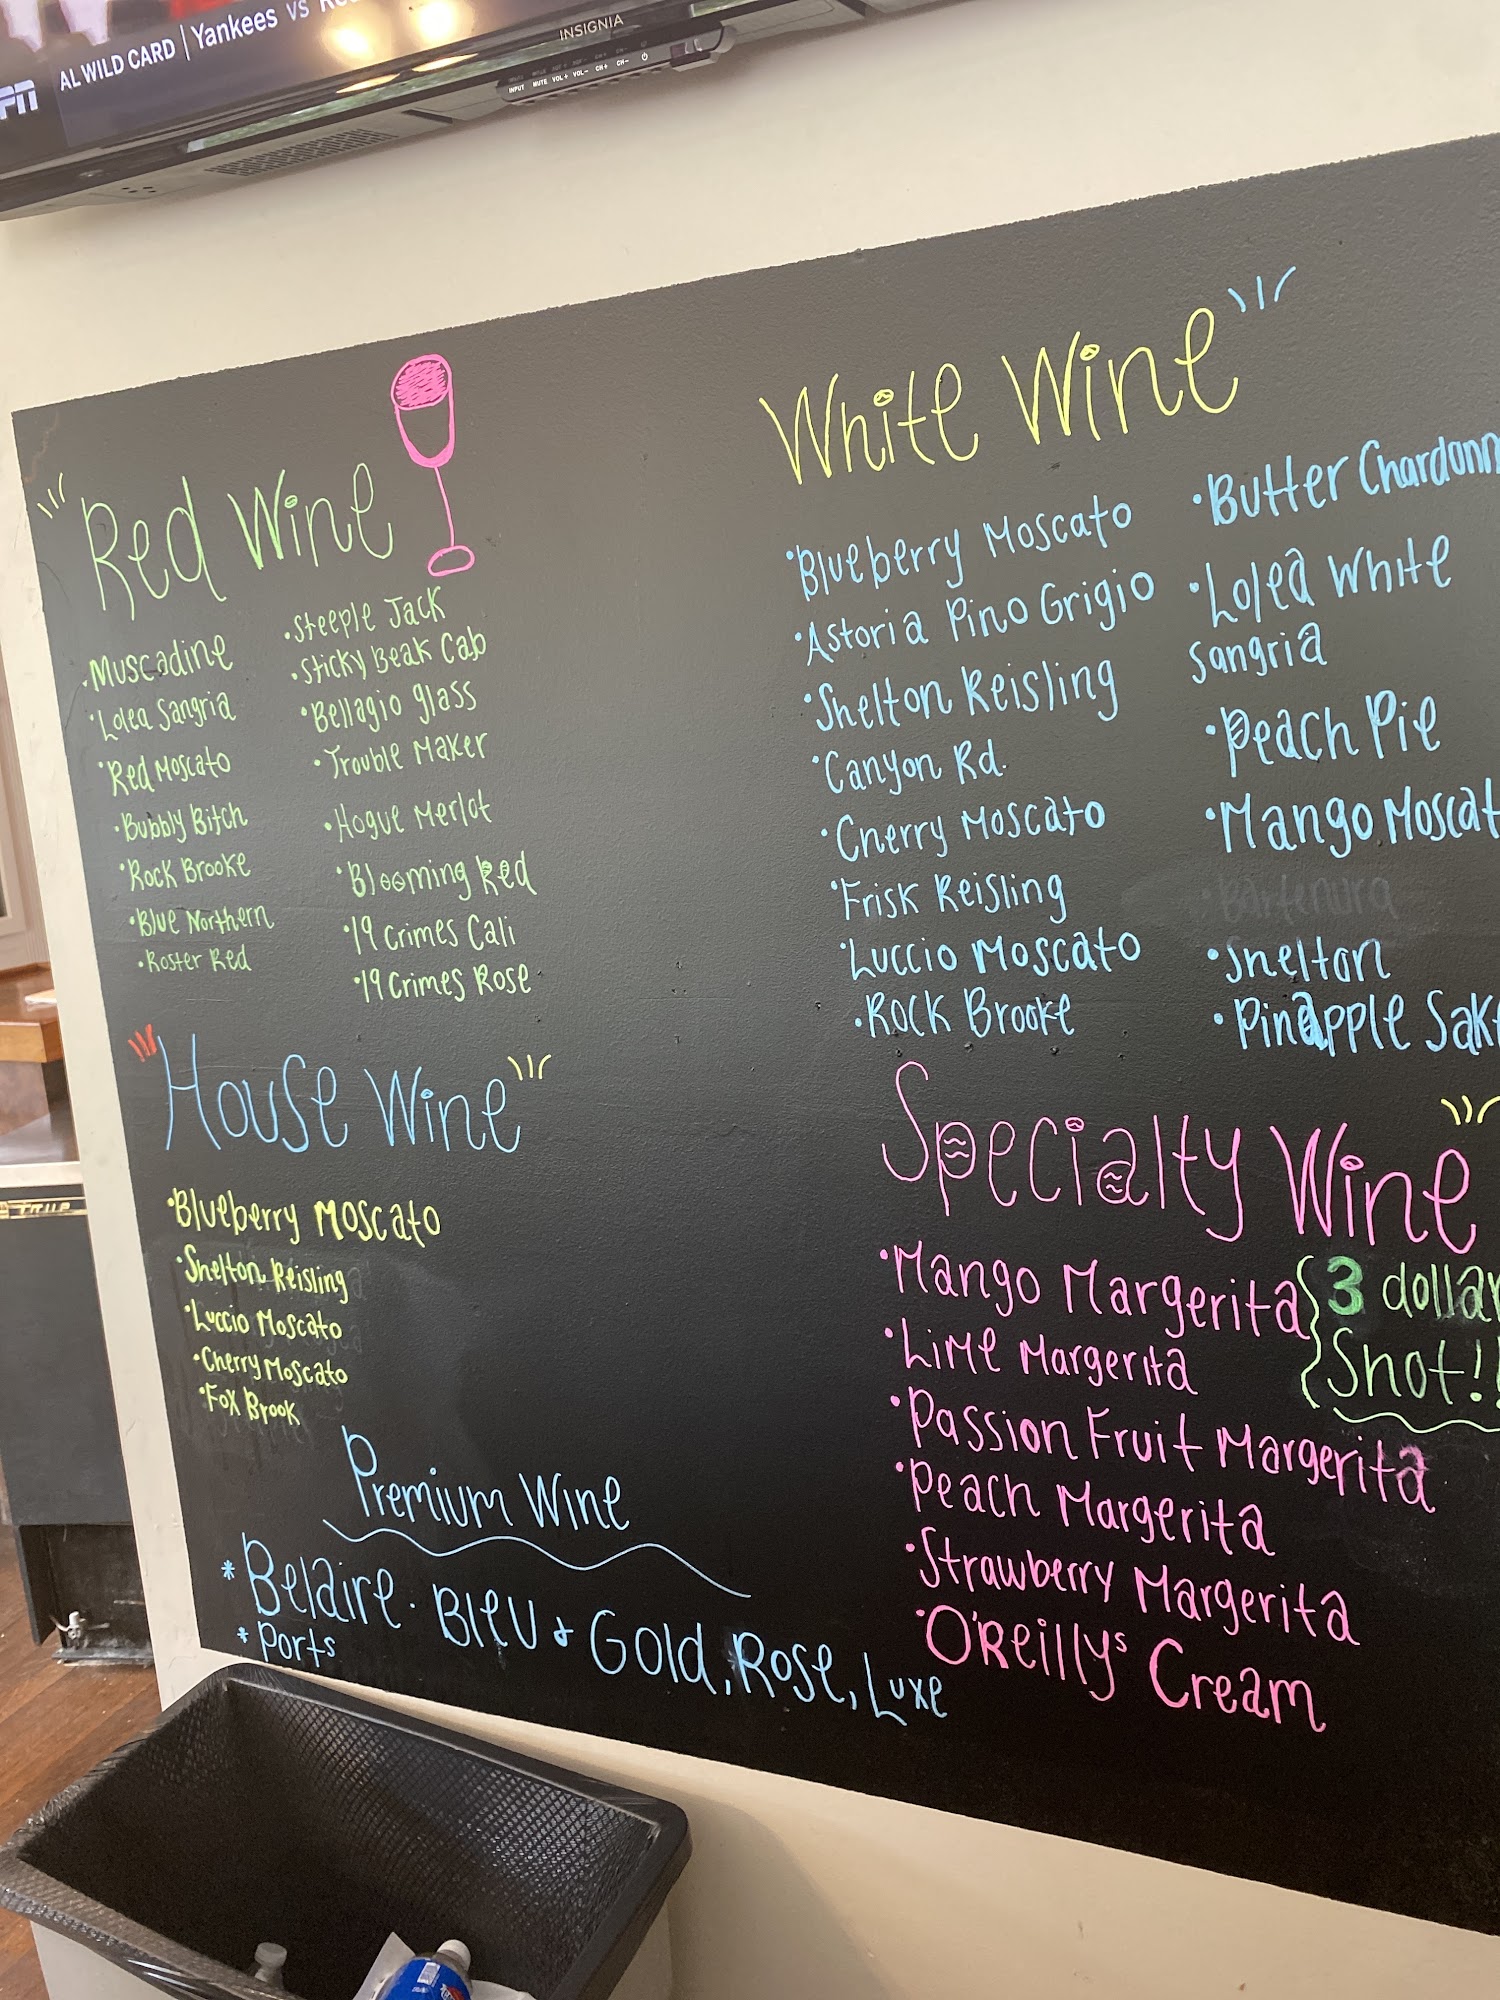 AL WILD CARD | Yankees vs
INSIGNIA
INPUT MUTE VOL+ VOL- CH+ CH-
Red Wine
·Muscadine
·Lolea Sangria
·Red Moscato
·Bubbly Bitch
·Rock Brooke
·Blue Northern
·Roster Red
·Steeple Jack
·Sticky Beak Cab
·Bellagio glass
·Trouble Maker
·Hogue Merlot
·Blooming Red
·19 Crimes Cali
·19 Crimes Rose
White Wine
·Blueberry Moscato
·Astoria Pino Grigio
·Shelton Reisling
·Canyon Rd.
·Cherry Moscato
·Frisk Reisling
·Luccio Moscato
·Rock Brooke
·Butter Chardonn
·Lolea White
Sangria
·Peach Pie
·Mango Moscat
·Bartenura
·Shelton
·Pineapple Sak
House Wine
·Blueberry Moscato
·Shelton Reisling
·Luccio Moscato
·Cherry Moscato
·Fox Brook
Specialty Wine
·Mango Margerita
·Lime Margerita
·Passion Fruit Margerita
·Peach Margerita
·Strawberry Margerita
·O'Reillys Cream
3 dollar
Shot!!
Premium Wine
* Belaire · Bleu & Gold, Rose, Luxe
* Ports
TRUE